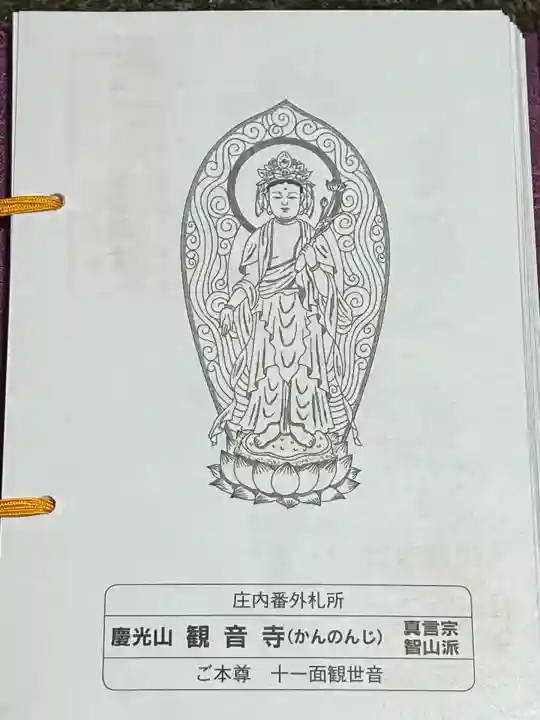 庄内番外札所
慶光山 観音寺(かんのんじ) 真言宗
智山派
ご本尊 十一面観世音